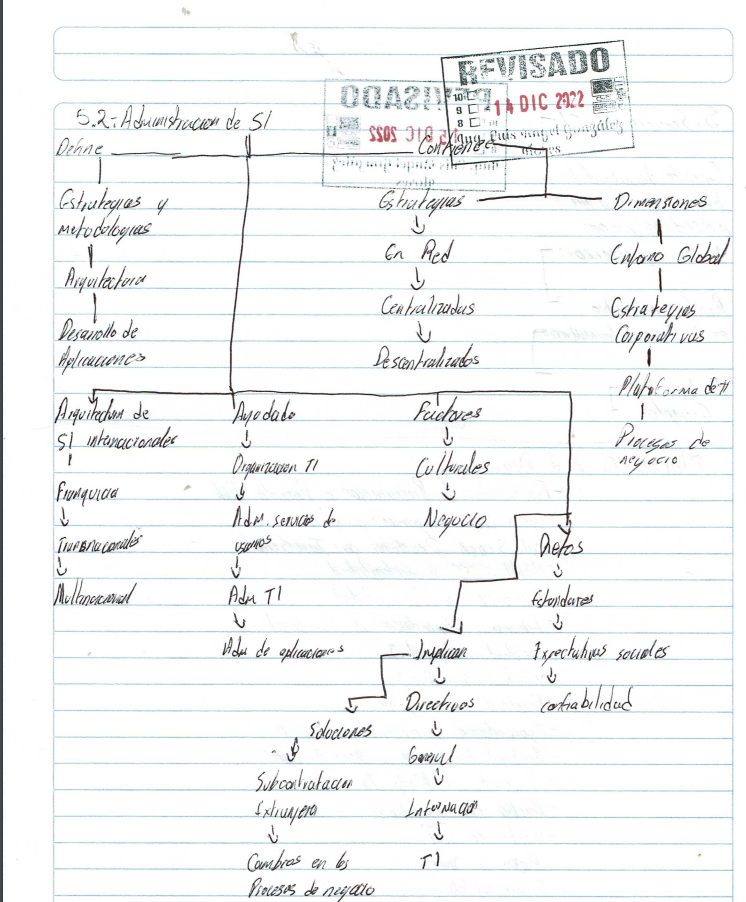 REVISADO
10
9
8
14 DIC 2022
5.2.- Administracion de SI
Define
Contienee
Estrategias y
metodologias
Arquitectura
Desarrollo de
Aplicaciones
Estrategias
En Red
Centralizadas
Descentralizados
Dimensiones
Entorno Global
Estrategias
Corporativas
Plataforma de TI
Procesos de
negocio
Arquitectura de
SI internacionales
Franquicia
Transnacionales
Multinacional
Ayudado
Organizacion TI
Adm. servicios de
usuarios
Adm TI
Adm de aplicaciones
Factores
Culturales
Negocio
Retos
Estandares
Expectativas sociales
confiabilidad
Implican
Directivos
General
Internacion
TI
Soluciones
Subcontratacion
Extranjera
Cambios en los
Procesos de negocio